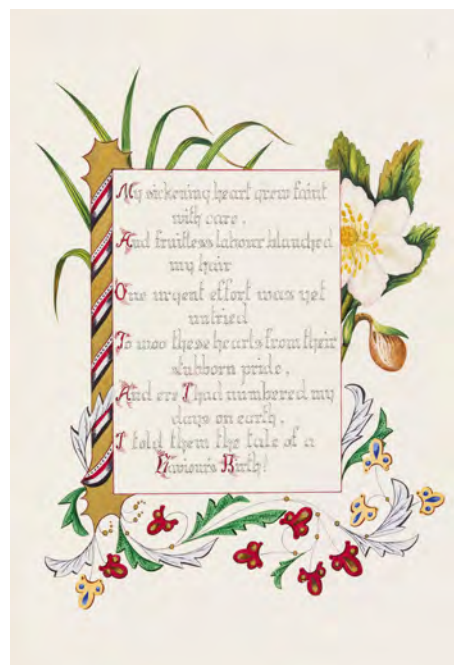 My sickening heart grew faint
with care,
And fruitless labour blanched
my hair
One urgent effort was yet
untried
To woo these hearts from their
stubborn pride,
And ere I had numbered my
days on earth,
I told them the tale of a
Saviour's Birth!